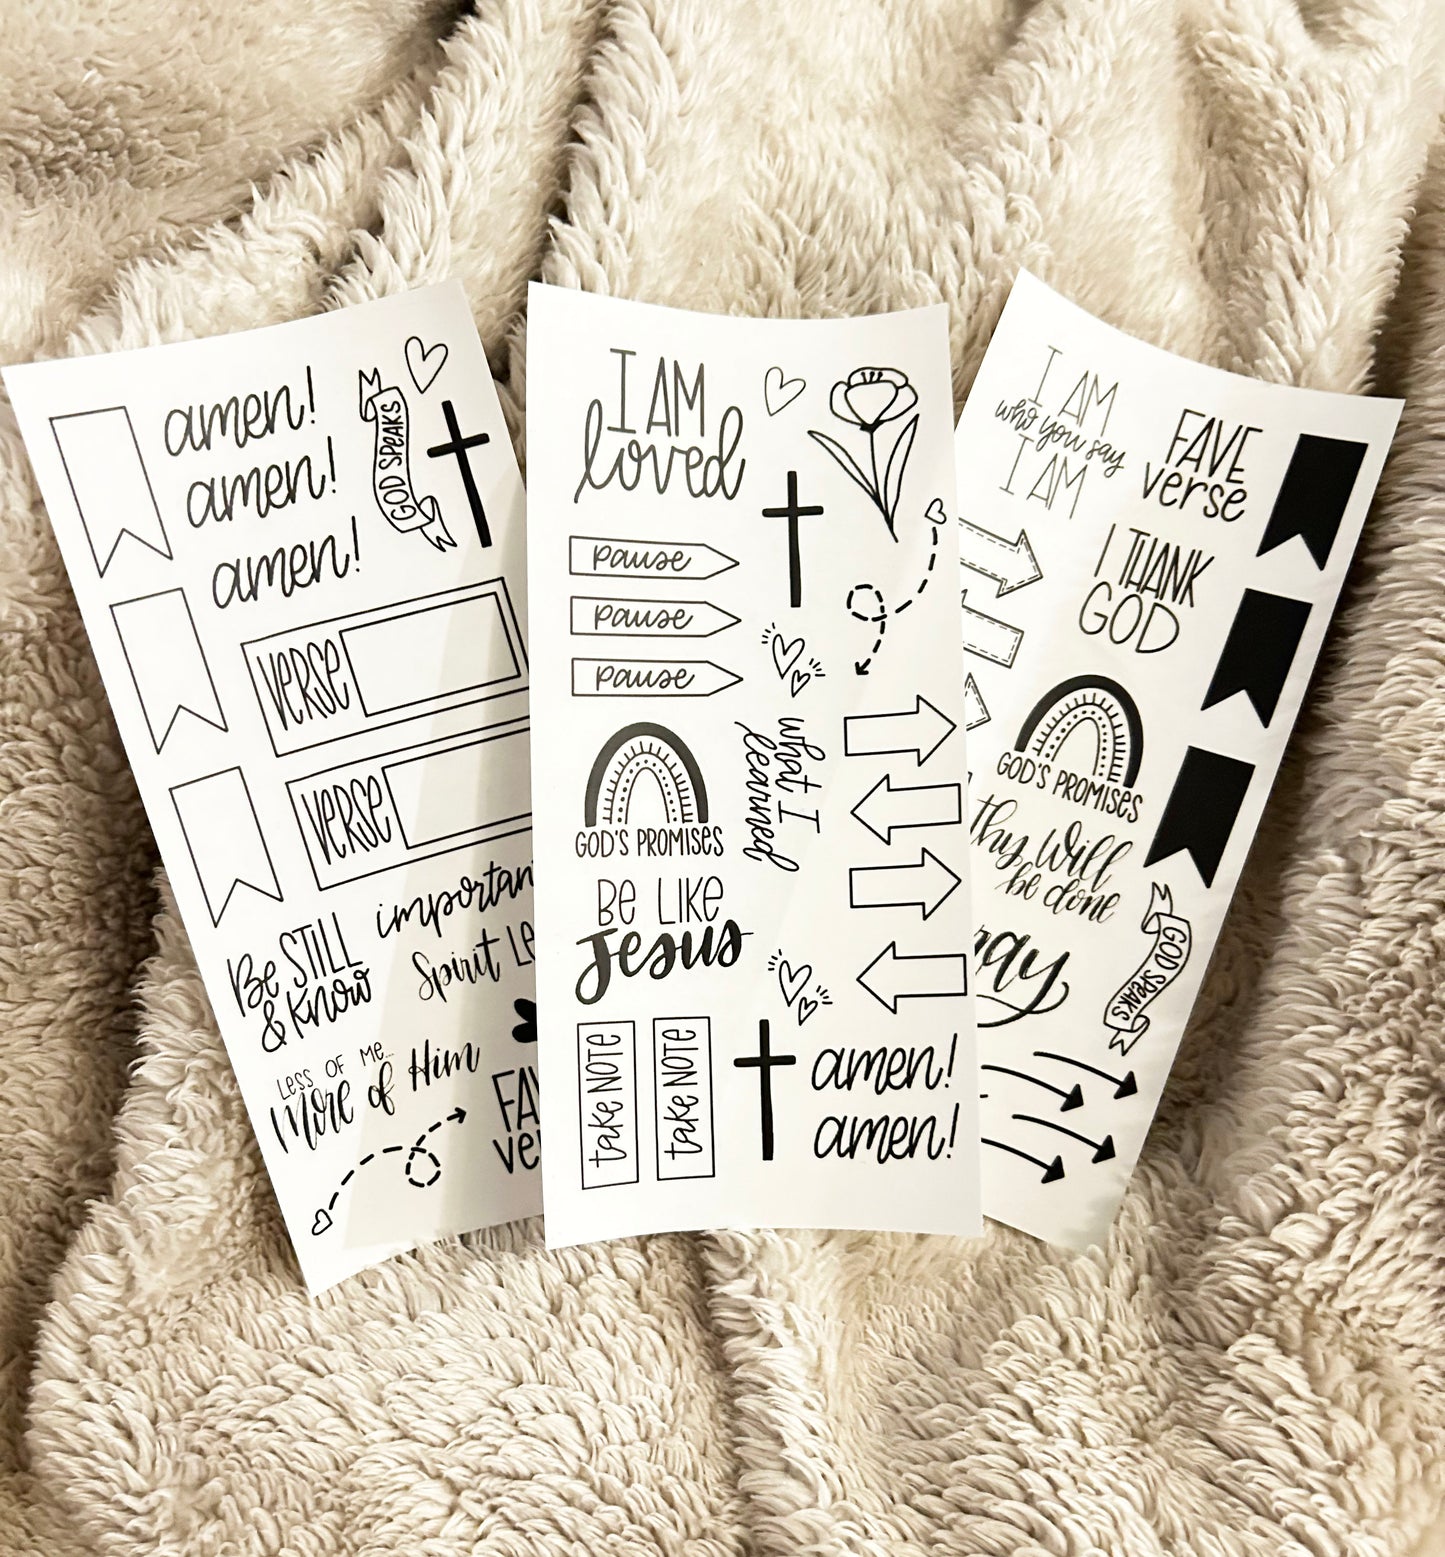 amen!
amen!
amen!
GOD SPEAKS
VERSE
VERSE
Be STILL
& Know
important
Spirit
LESS OF ME...
more of Him
I AM
loved
pause
pause
pause
what I
learned
GOD'S PROMISES
BE LIKE
Jesus
take NOTE
take NOTE
amen!
amen!
I AM
who you say
I AM
FAVE
verse
I THANK
GOD
GOD'S PROMISES
thy will
be done
GOD SPEAKS